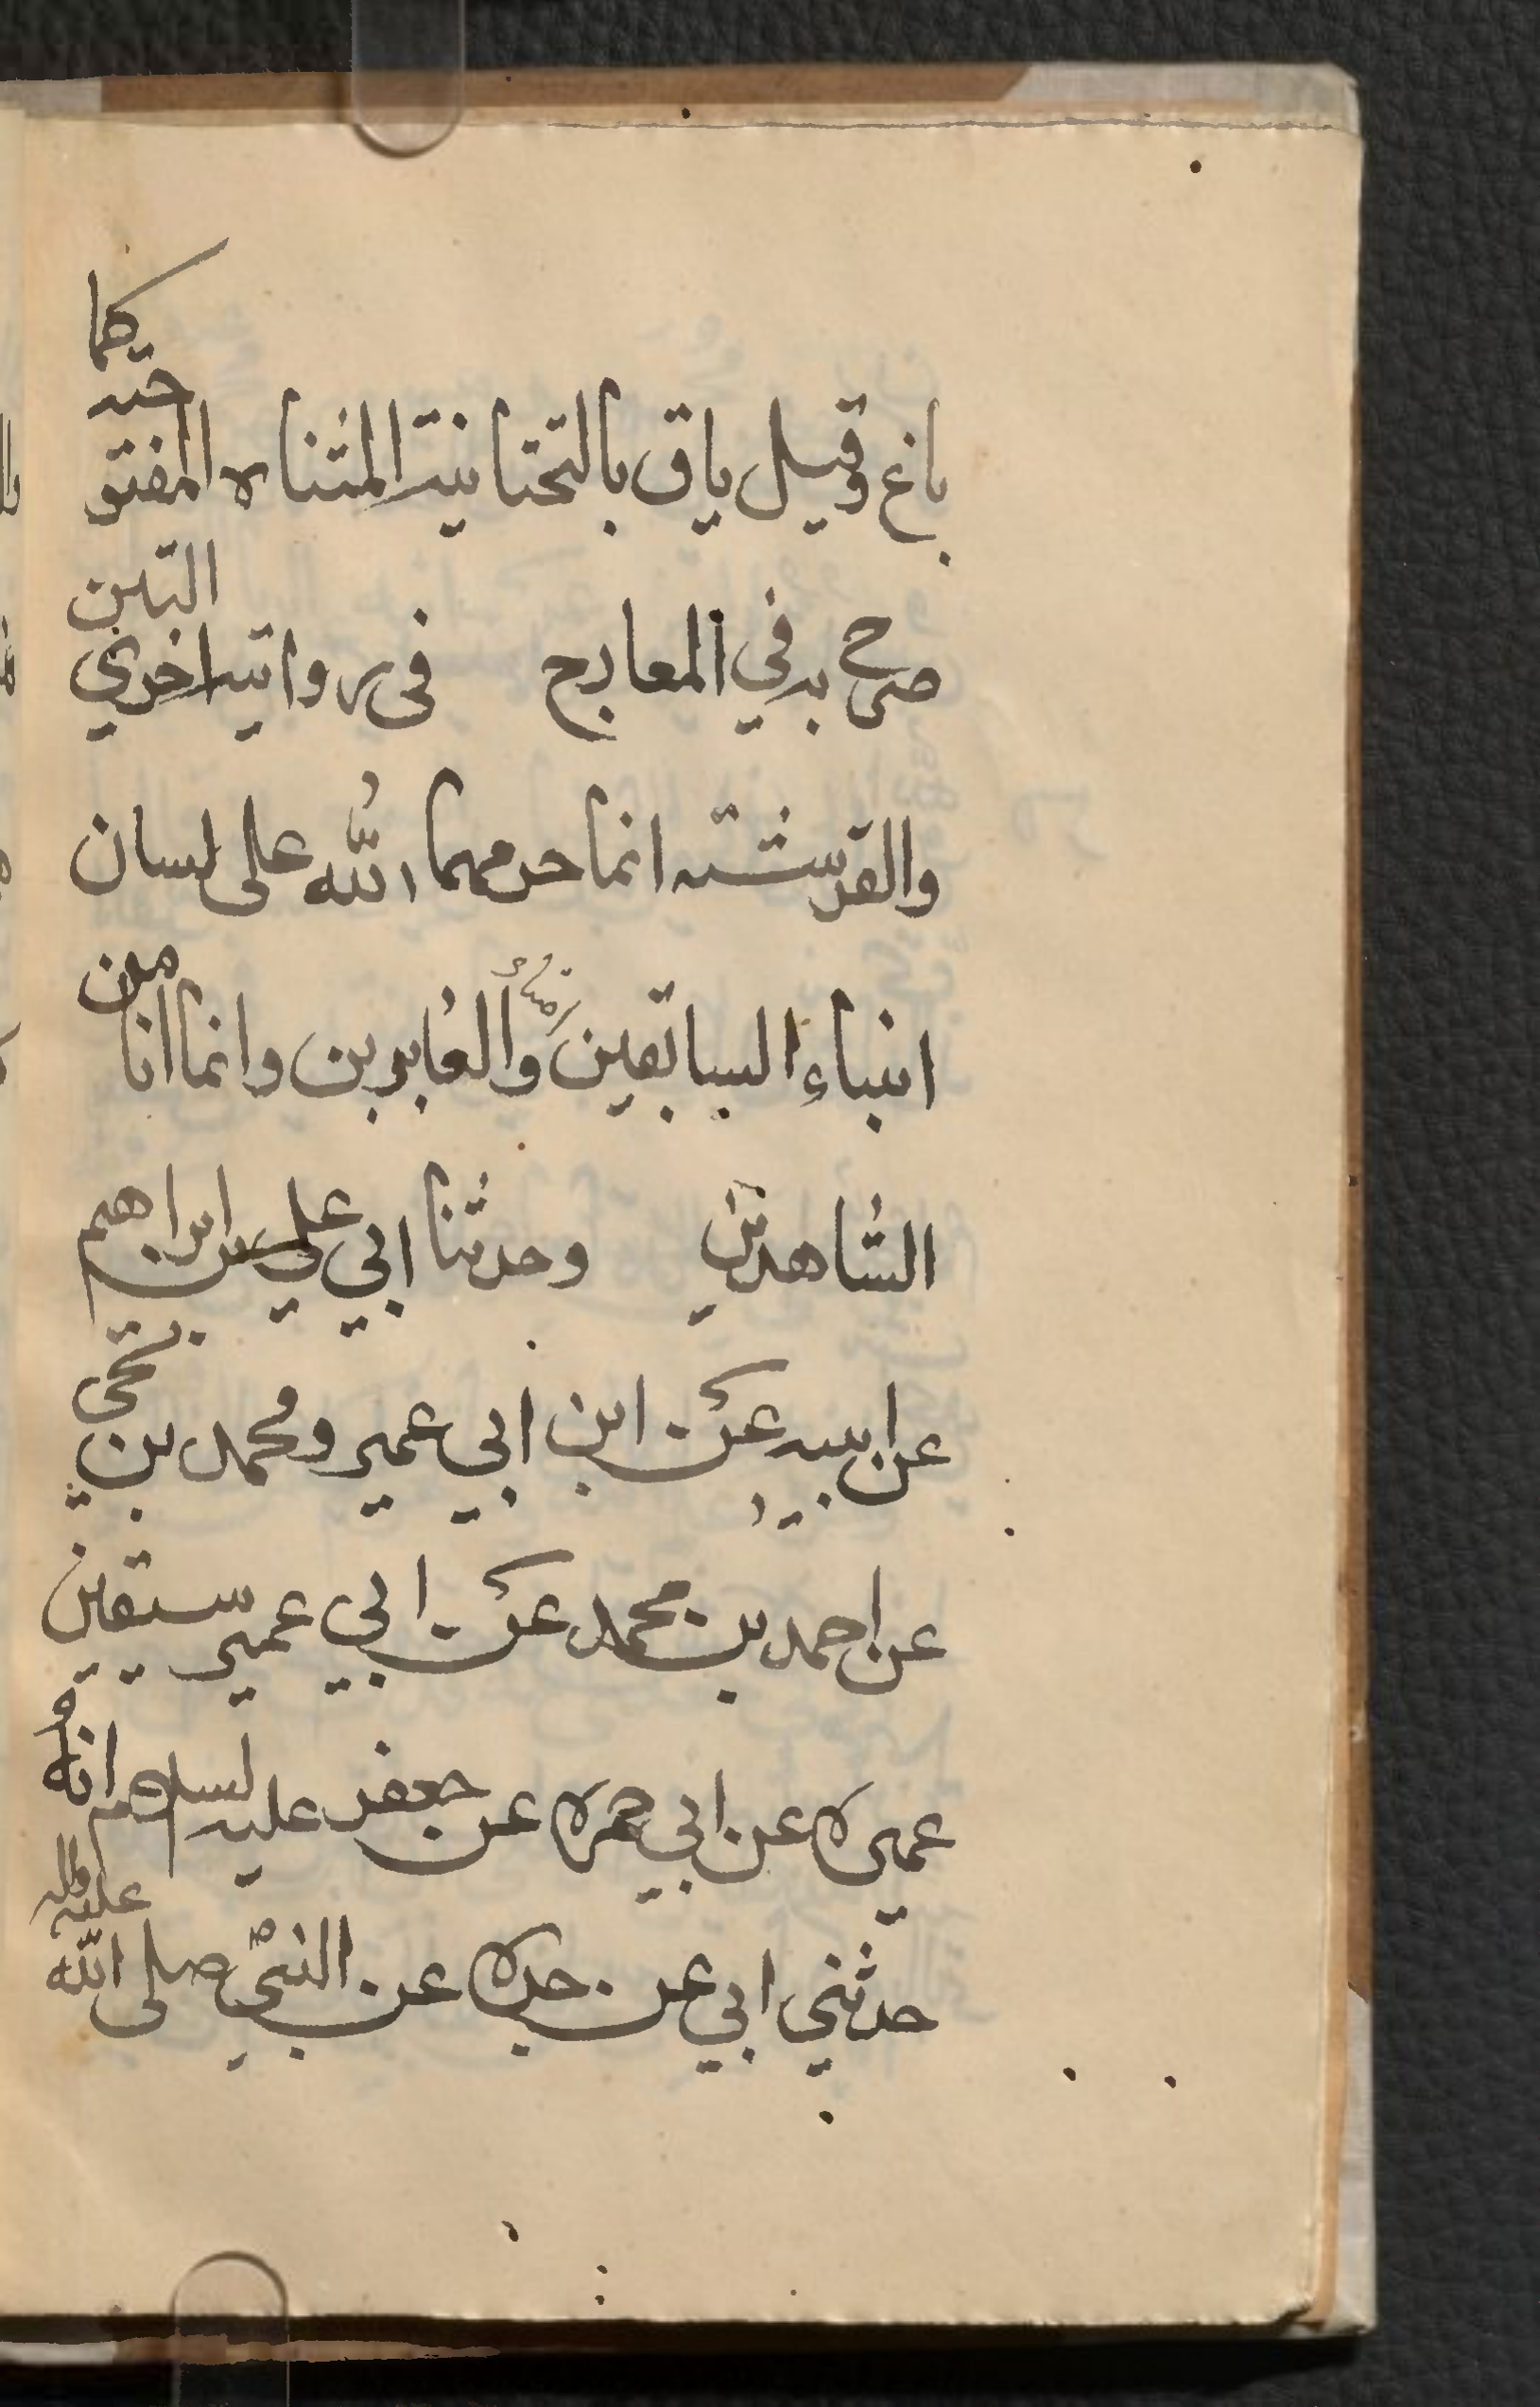 باغ وقيل ياق بالتحتانية المثناه المفتو حيه كما
صرح به في المعارج في رواية اخري التين
والقرشته انما حرمهما الله على لسان
انبياء السابقين والعابرين وانما انا من
الشاهدين وحدثنا ابي علي بن ابراهيم
عن ابيه عن ابن ابي عمير ومحمد بن يحيى
عن احمد بن محمد عن ابي عمير سيقين
عميره عن ابي حمزه عن جعفر عليه لسلام انه
حدثني ابي عن جده عن النبي صلى الله عليه واله